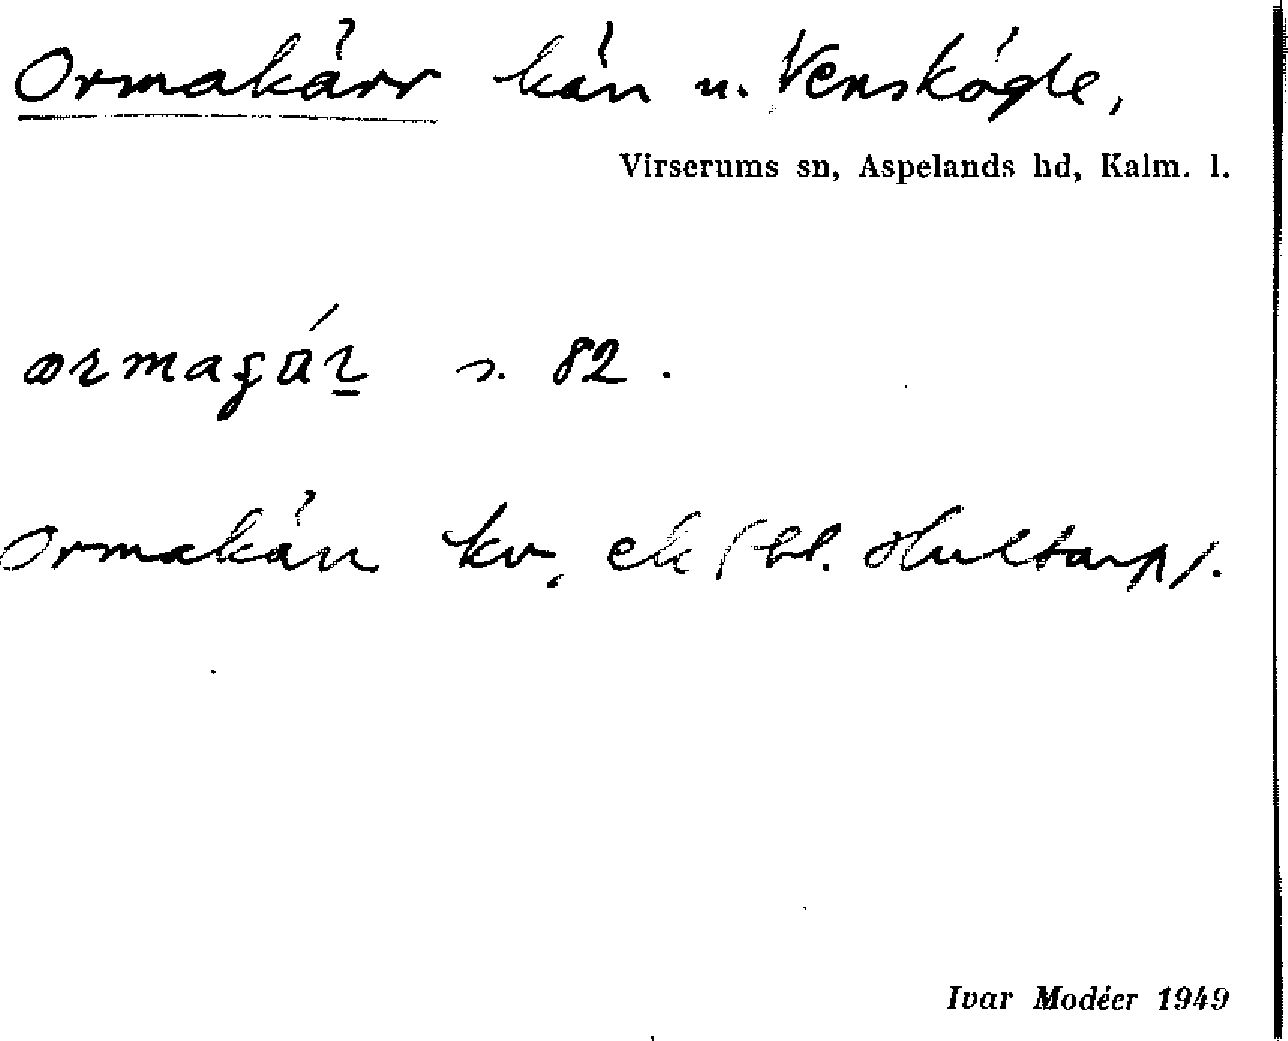 Ormakärr kärr u. Venskögle,
Virserums sn, Aspelands hd, Kalm. l.
s. 82.
Ormakärr kv, ek (bl. Hultarp).
Ivar Modéer 1949